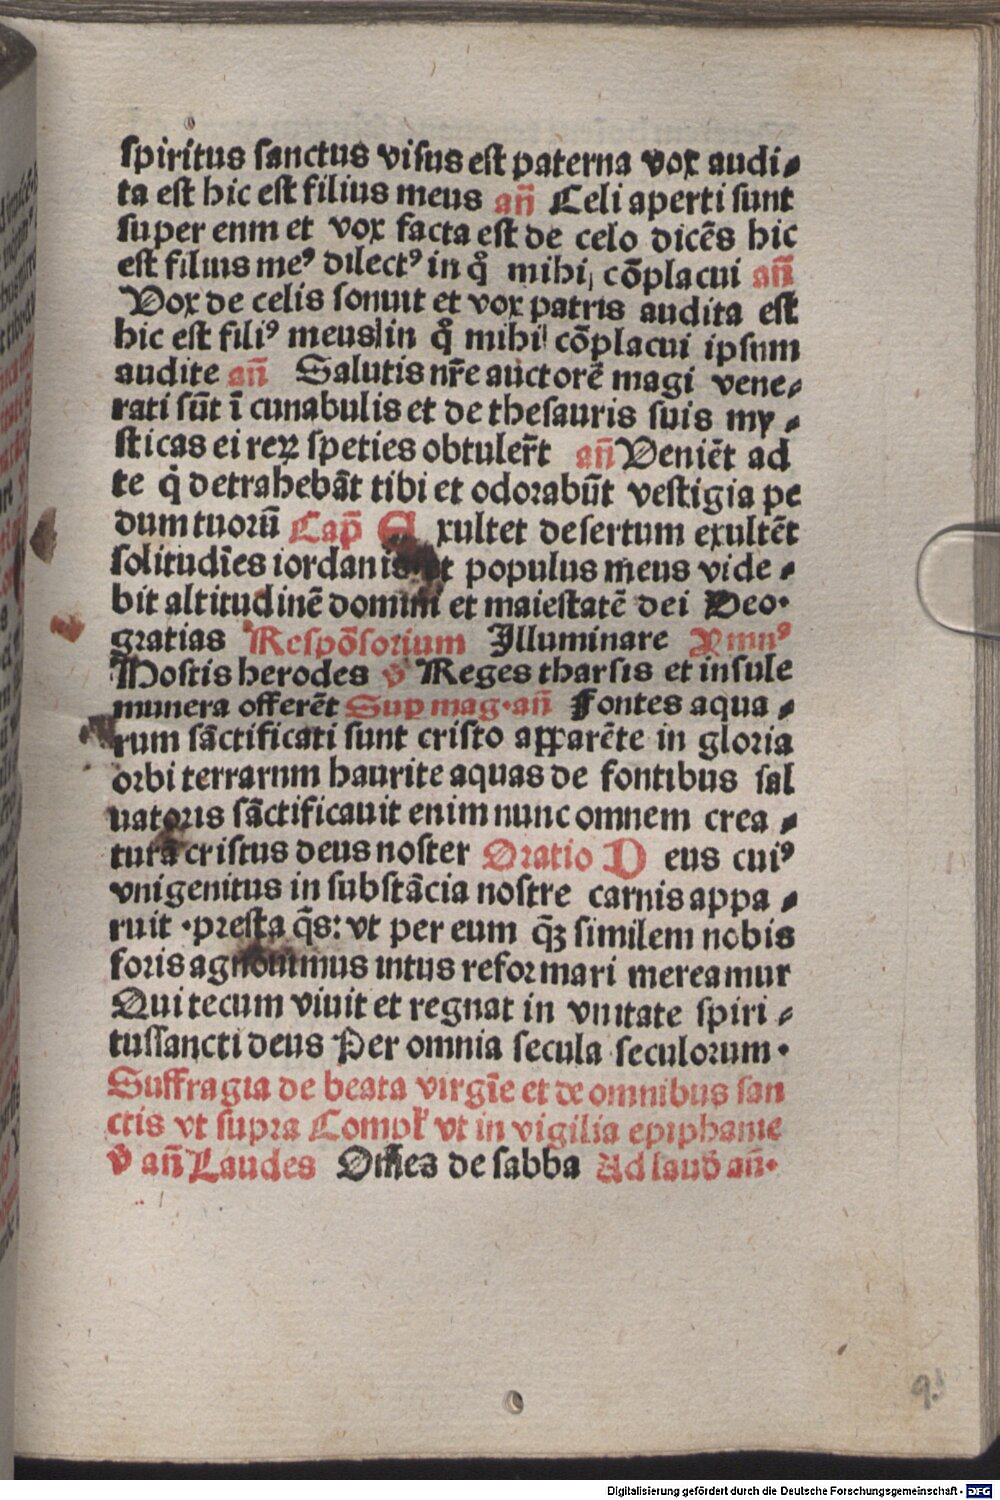 spiritus sanctus visus est paterna vox audi⸗
ta est hic est filius meus añ Celi aperti sunt
super enm et vox facta est de celo dicēs hic
est filius meꝰ dilectꝰ in q̊ mihi cōplacui añ
Vox de celis sonuit et vox patris audita est
hic est filiꝰ meus in q̊ mihi cōplacui ipsum
audite añ Salutis nr̄e auctorē magi vene⸗
rati sūt ī cunabulis et de thesauris suis my⸗
sticas ei reꝝ speties obtuler̄t añ Veniēt ad
te q̇ detrahebāt tibi et odorabūt vestigia pe
dum tuorū Cap̄ xultet desertum exultēt
solitudīes iordanis et populus meus vide⸗
bit altitudinē domini et maiestatē dei Deo·
gratias Respōsorium Illuminare Ymnꝰ
Hostis herodes v̊ Reges tharsis et insule
munera offerēt Suꝑ mag·añ Fontes aqua⸗
rum sāctificati sunt cristo apparēte in gloria
orbi terrarum haurite aquas de fontibus sal
uatoris sāctificauit enim nunc omnem crea⸗
turā cristus deus noster Oratio D eus cuiꝰ
vnigenitus in substācia nostre carnis appa⸗
ruit ·presta q̄s: vt per eum q̄ꝫ similem nobis
foris agnouimus intus reformari mereamur
Qui tecum viuit et regnat in vnitate spiri⸗
tussancti deus Per omnia secula seculorum·
Suffragia de beata virgīe et de omnibus san
ctis vt supra Compƚ vt in vigilia epiphanie
v̊ añ Laudes Om̄es de sabba Ad laud̄ añ·
Digitalisierung gefördert durch die Deutsche Forschungsgemeinschaft - DFG